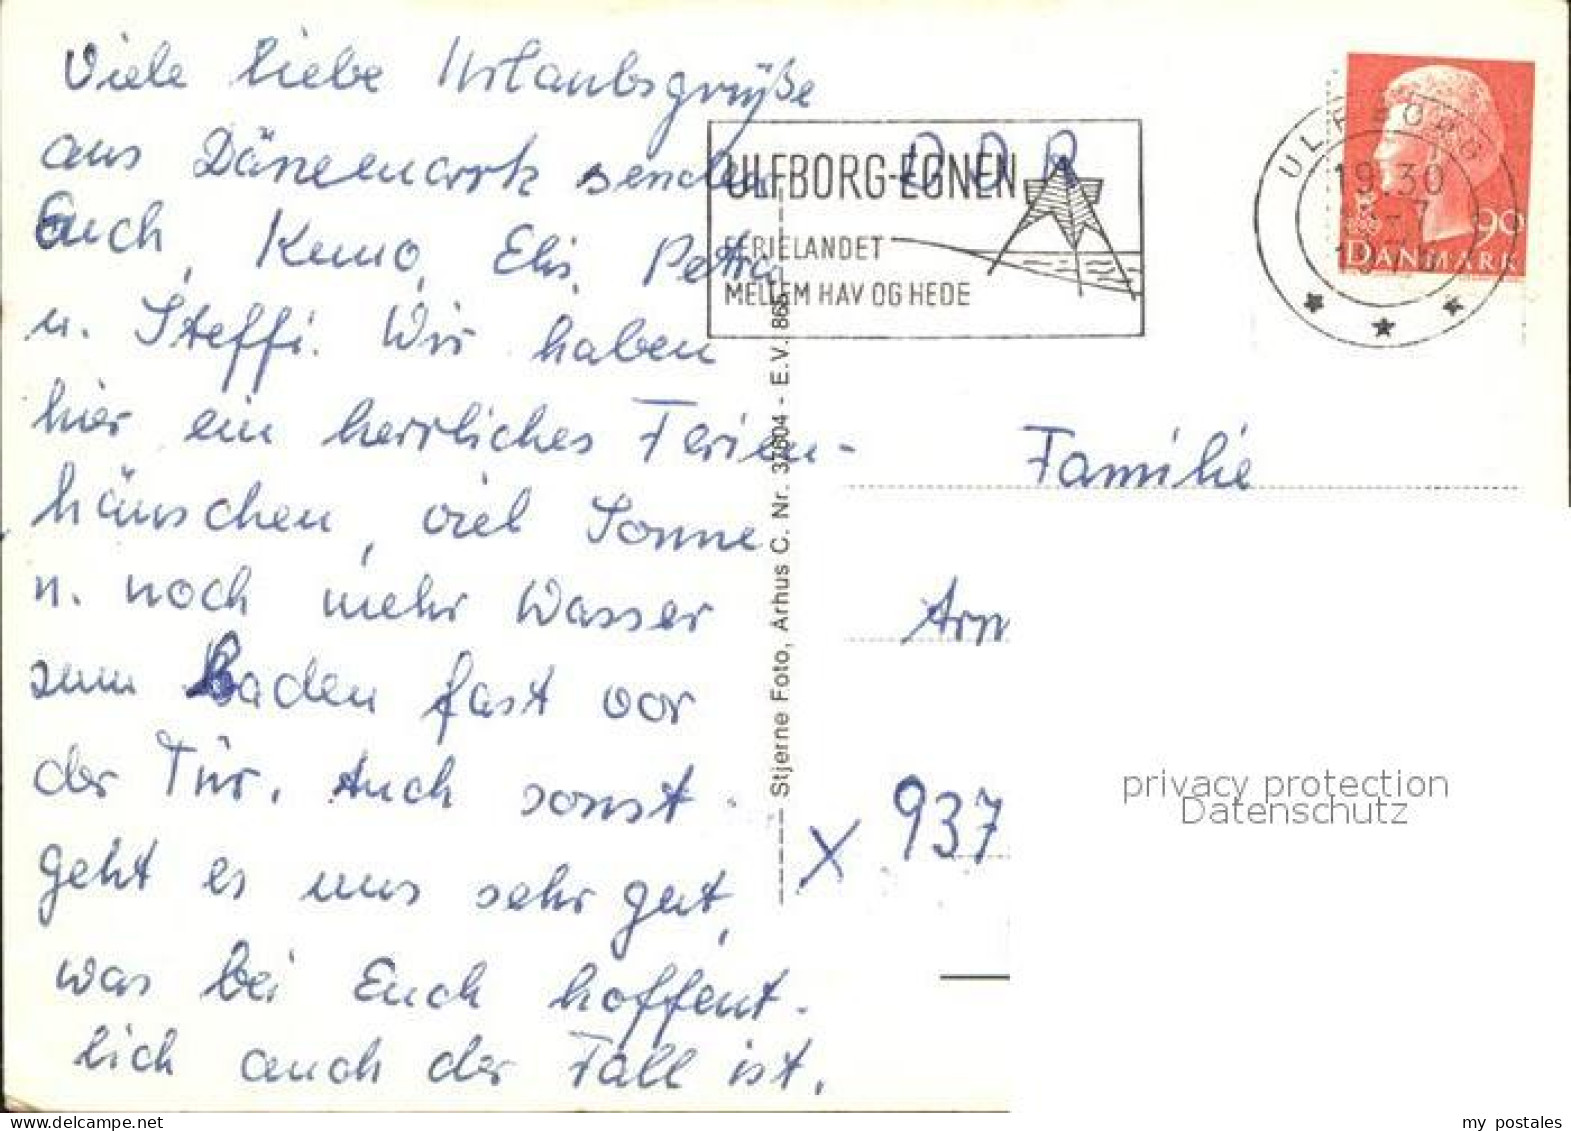 Viele liebe Urlaubsgrüße
aus Dänemark senden
Euch, Kuno, Elis, Petra
u. Steffi. Wir haben
hier ein herrliches Ferien-
häuschen, viel Sonne
u. noch mehr Wasser
zum Baden fast vor
der Tür. Auch sonst
geht es uns sehr gut,
was bei Euch hoffent-
lich auch der Fall ist.
Stjerne Foto, Arhus C. Nr. 37604 - E.V. 865
ULFBORG-EGNEN
FERIELANDET
MELLEM HAV OG HEDE
DDR
ULFBORG
19.30
90
DANMARK
Familie
Arn
X 937
privacy protection
Datenschutz
my postales